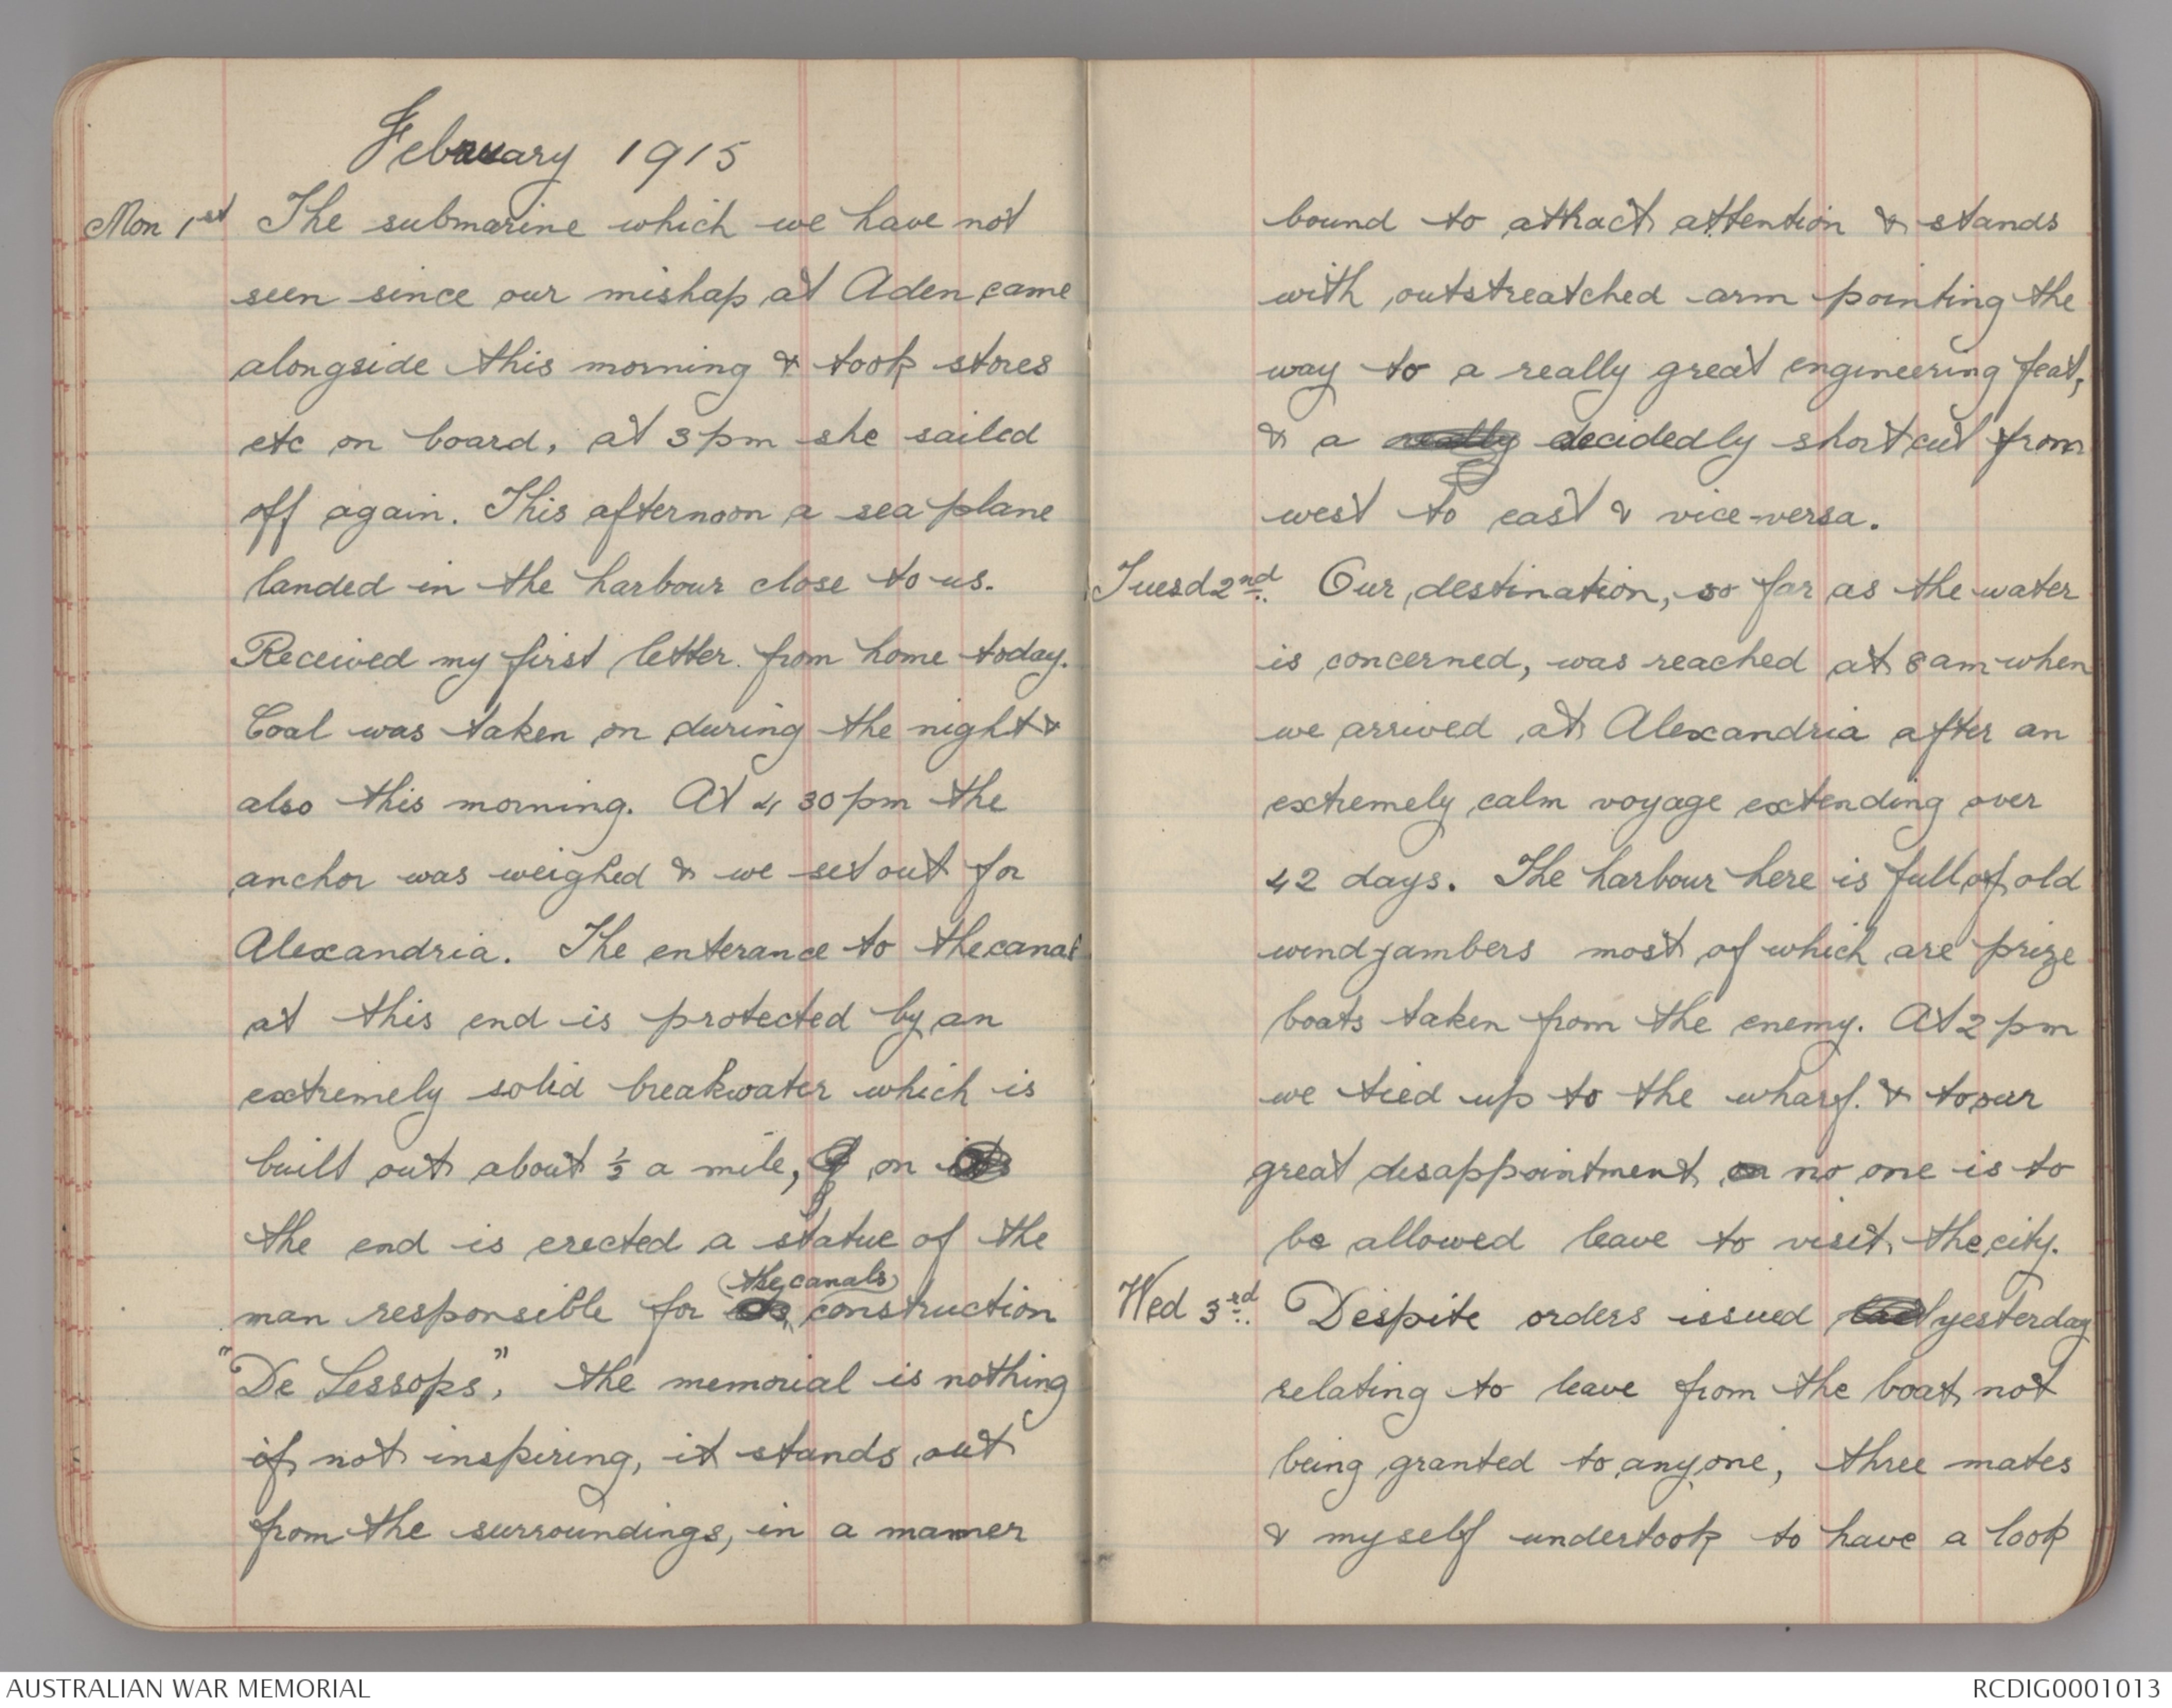 February 1915
Mon 1st The submarine which we have not
seen since our mishap at Aden came
alongside this morning & took stores
etc on board, at 3pm she sailed
off again. This afternoon a sea plane
landed in the harbour close to us.
Received my first letter from home today.
Coal was taken on during the night &
also this morning. At 4 30 pm the
anchor was weighed & we set out for
Alexandria. The enterance to the canal
at this end is protected by an
extremely solid breakwater which is
built out about ½ a mile, on
the end is erected a statue of the
(the canals)
man responsible for construction
"De Lessops", the memorial is nothing
if not inspiring, it stands out
from the surroundings, in a manner
bound to attract attention & stands
with outstreatched arm pointing the
way to a really great engineering feat,
& a really decidedly short cut from
west to east & vice-versa.
Tuesd 2nd. Our destination, so far as the water
is concerned, was reached at 8am when
we arrived at Alexandria after an
extremely calm voyage extending over
42 days. The harbour here is full of old
windjambers most of which are prize
boats taken from the enemy. At 2 pm
we tied up to the wharf. & to our
great disappointment no one is to
be allowed leave to visit the city.
Wed 3rd. Despite orders issued yesterday
relating to leave from the boat not
being granted to anyone, three mates
& myself undertook to have a look
AUSTRALIAN WAR MEMORIAL
RCDIG0001013